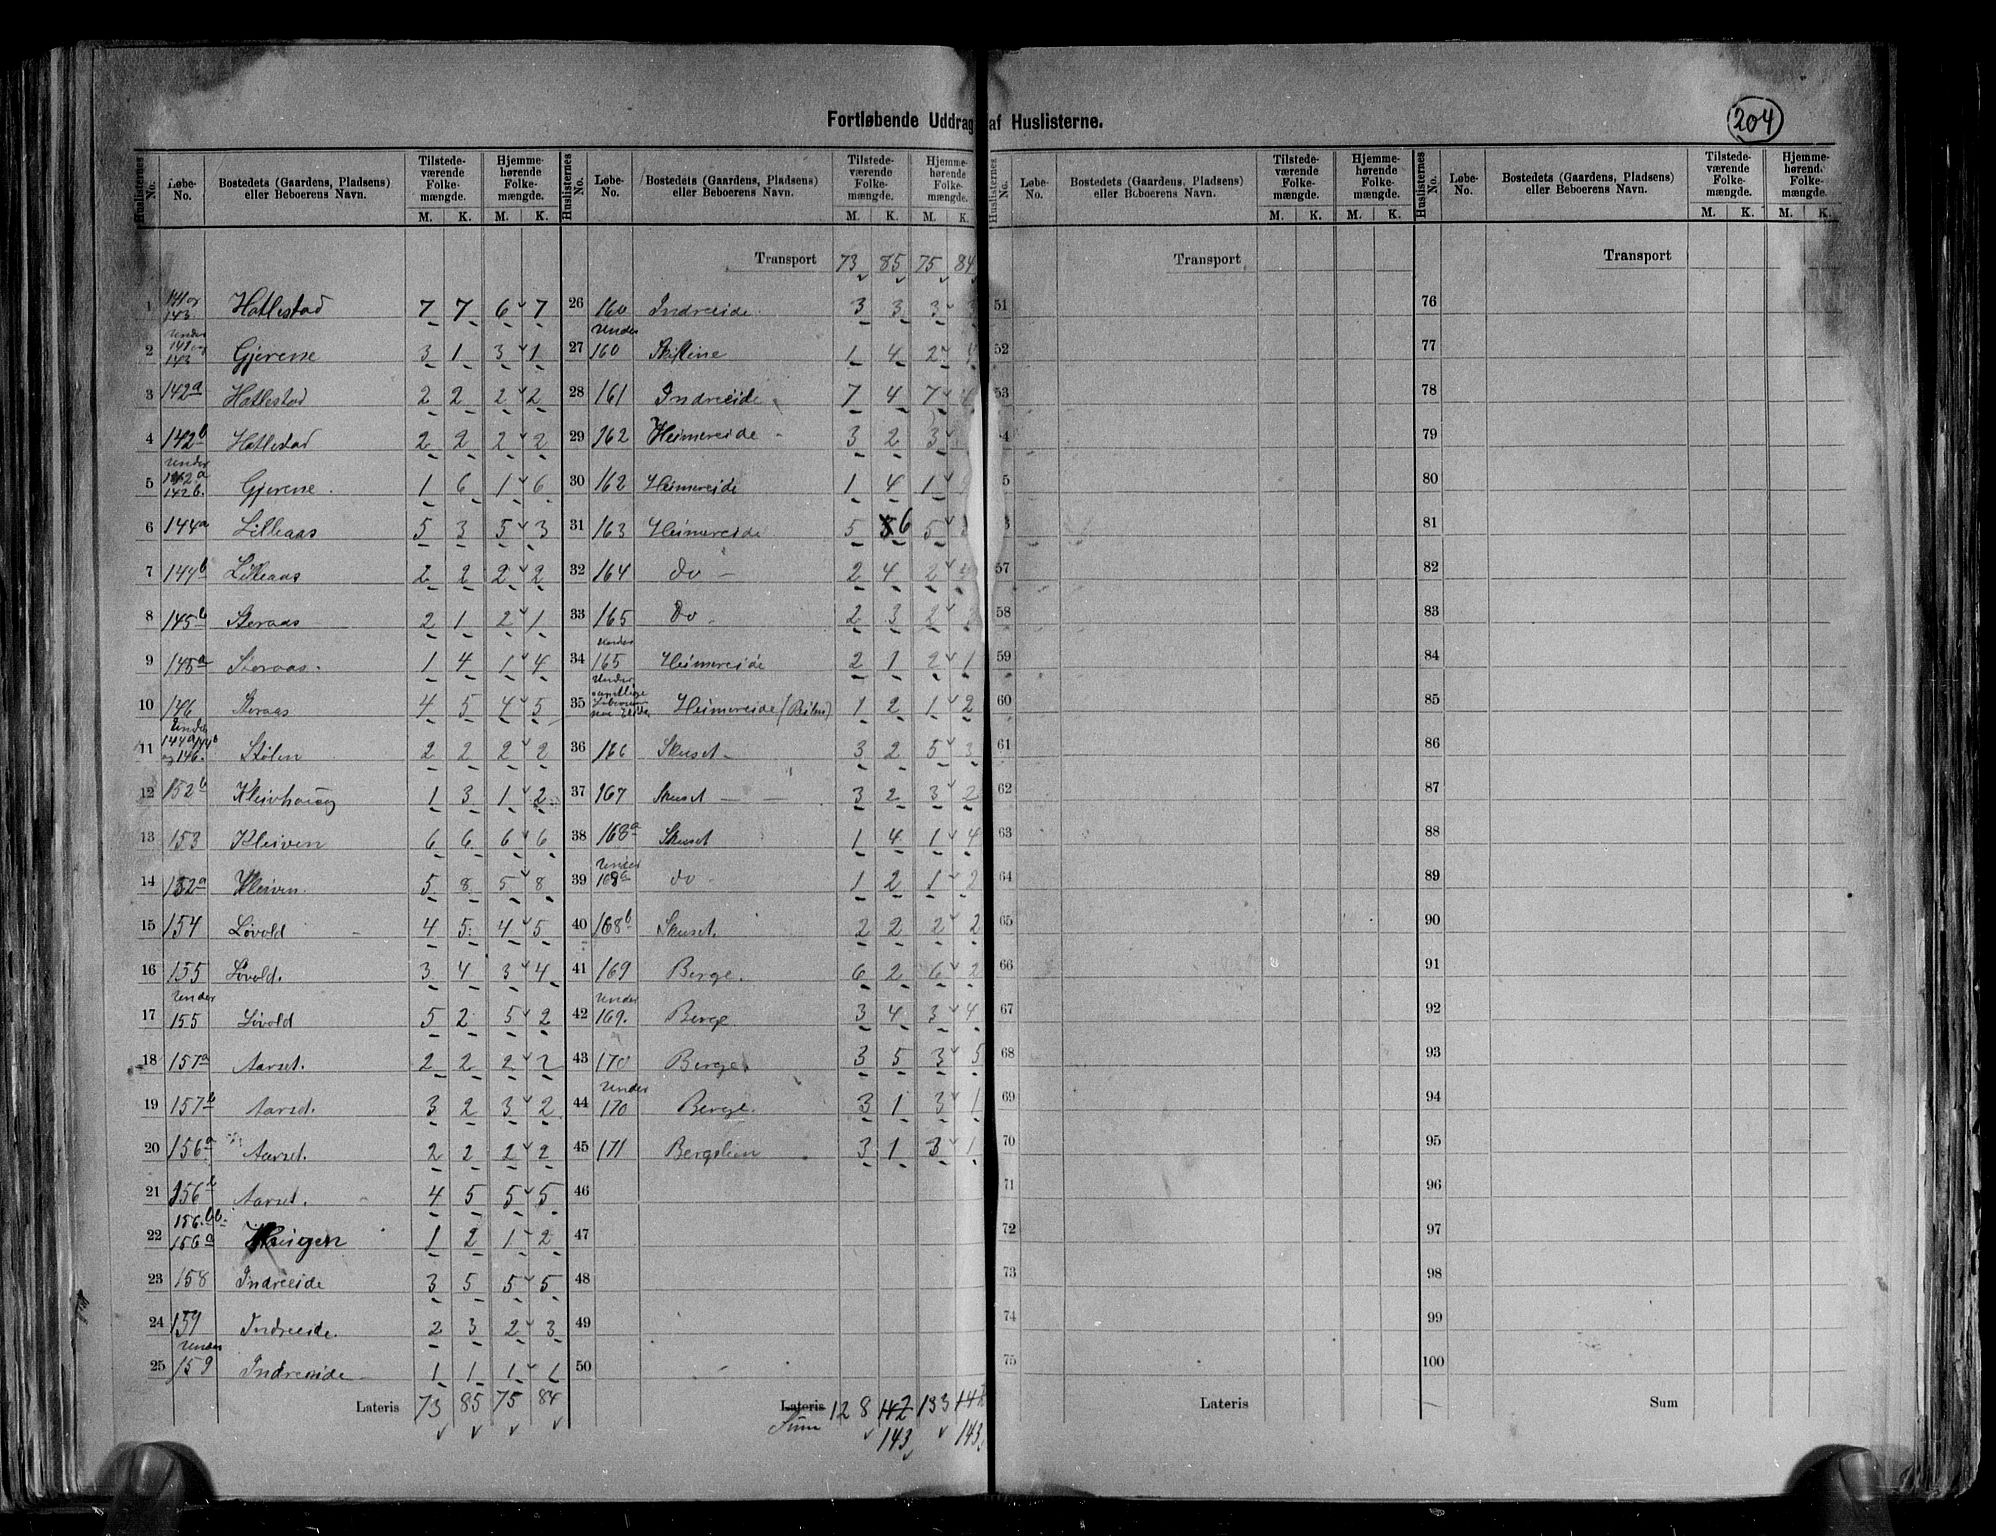 204
Fortløbende Uddrag af Huslisterne.
Huslisternes No. Løbe-No. Bostedets (Gaardens, Pladsens) eller Beboerens Navn. Tilstedeværende Folkemængde. M. K. Hjemmehørende Folkemængde. M. K.
1 141 og 143. Hatlestad 7 7 6 7
2 Under 141 og 143 Gjerene 3 1 3 1
3 142a Hatlestad 2 2 2 2
4 142b Hatlestad 2 2 2 2
5 Under 142a 142b. Gjerene. 1 6 1 6
6 144a Lilleaas 5 3 5 3
7 144b Lilleaas 2 2 2 2
8 145b Storaas 2 1 2 1
9 145a Storaas. 1 4 1 4
10 146 Storaas 4 5 4 5
11 Under 144a 144b og 146. Stølen 2 2 2 2
12 152b Kleivhaug 1 3 1 2
13 153 Kleiven 6 6 6 6
14 152a Kleiven. 5 8 5 8
15 154 Løvold 4 5 4 5
16 155 Løvold. 3 4 3 4
17 Under 155 Løvold 5 2 5 2
18 157a Aarset. 2 2 2 2
19 157b Aarset. 3 2 3 2
20 156a Aarset. 2 2 2 2
21 156b Aarset. 4 5 5 5
22 156.bb. 156a Haugen 1 2 1 2
23 158 Indreeide 3 5 5 5
24 159 Indreeide. 2 3 2 3
25 Under 159 Indreeide 1 1 1 1
Lateris 73 85 75 84
Huslisternes No. Løbe-No. Bostedets (Gaardens, Pladsens) eller Beboerens Navn. Tilstedeværende Folkemængde. M. K. Hjemmehørende Folkemængde. M. K.
Transport 73 85 75 84
26 160 Indreeide. 3 3 3 3
27 Under 160 1 4 2
28 161 Indreeide 7 4 7
29 162 Heimereide 3 2 3
30 162 Heimereide 1 4 1
31 163 Heimereide 5 6 5
32 164 Do 2 4 2
33 165 Do 2 3 2
34 Under 165 Heimereide 2 1 2 1
35 Under samtlige Heimereide 1 2 1 2
36 166 Skuset 3 2 5 3
37 167 Skuset 3 2 3 2
38 168a Skuset 1 4 1 4
39 Under 168a Do 1 2 1 2
40 168b Skuset. 2 2 2 2
41 169 Berge. 6 2 6 2
42 Under 169. Berge 3 4 3 4
43 170 Berge. 3 5 3 5
44 Under 170 Berge. 3 1 3 1
45 171 Bergslien 3 1 3 1
46
47
48
49
50
Lateris 128 142 133
Sum 143 143
Huslisternes No. Løbe-No. Bostedets (Gaardens, Pladsens) eller Beboerens Navn. Tilstedeværende Folkemængde. M. K. Hjemmehørende Folkemængde. M. K.
Transport
51
52
53
4
5
57
58
59
60
61
62
63
64
65
66
67
68
69
70
71
72
73
74
75
Lateris
Huslisternes No. Løbe-No. Bostedets (Gaardens, Pladsens) eller Beboerens Navn. Tilstedeværende Folkemængde. M. K. Hjemmehørende Folkemængde. M. K.
Transport
76
77
78
79
80
81
82
83
84
85
86
87
88
89
90
91
92
93
94
95
96
97
98
99
100
Sum